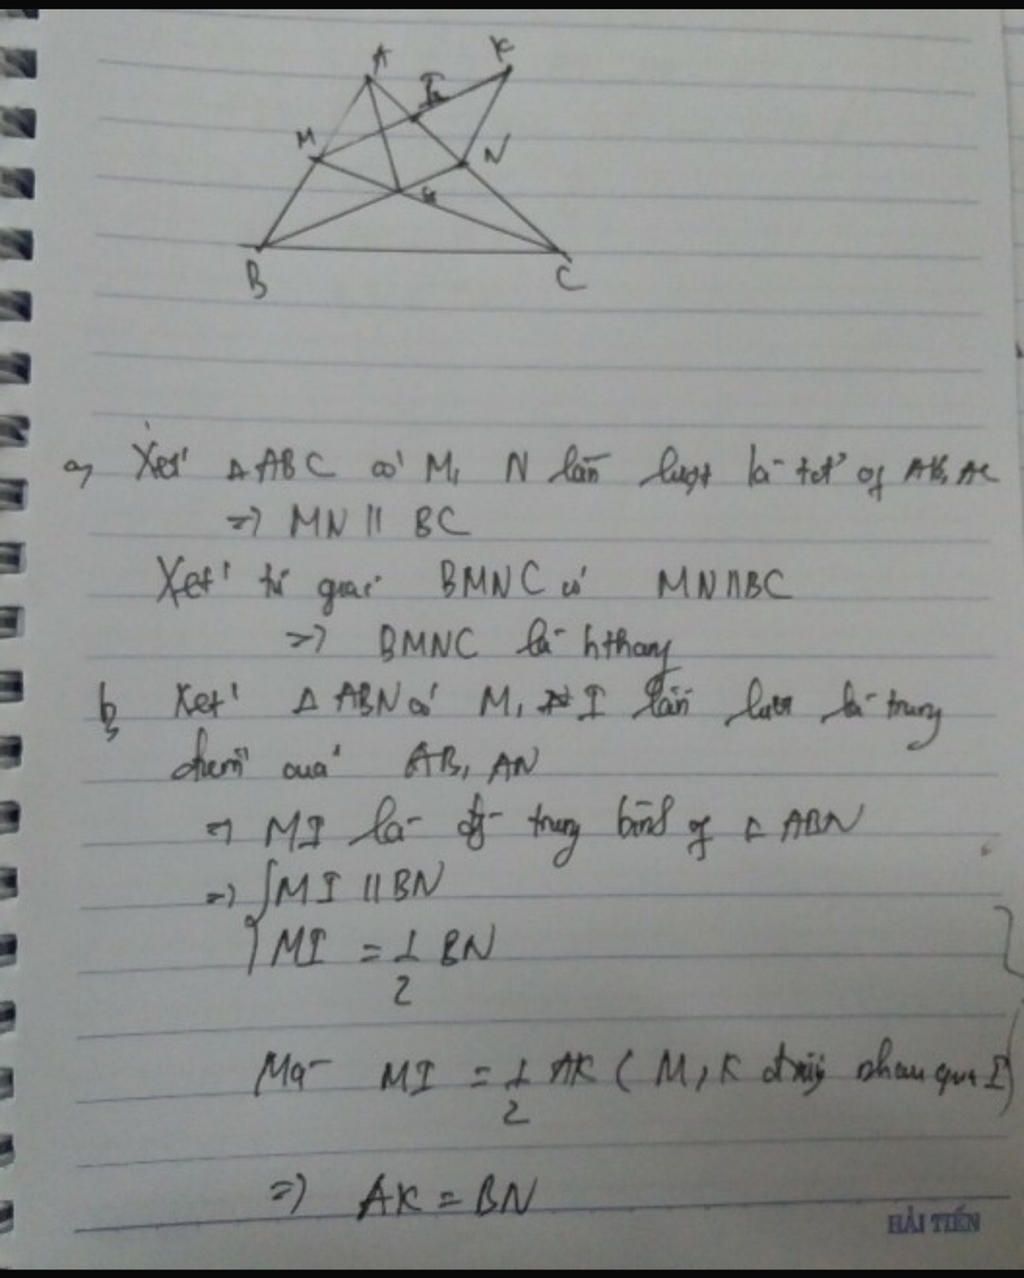 A
K
I
M
N
G
B
C
a, Xét Δ ABC có M, N lần lượt là tđ of AB, AC
=> MN || BC
Xét tứ giác BMNC có MN || BC
=> BMNC là hthang
b, Xét Δ ABN có M, I lần lượt là trung
điểm của AB, AN
=> MI là đg trung bình of Δ ABN
=> { MI || BN
MI = 1/2 BN
Mà MI = 1/2 AK ( M, K đxứg nhau qua I )
=> AK = BN
HẢI TIẾN